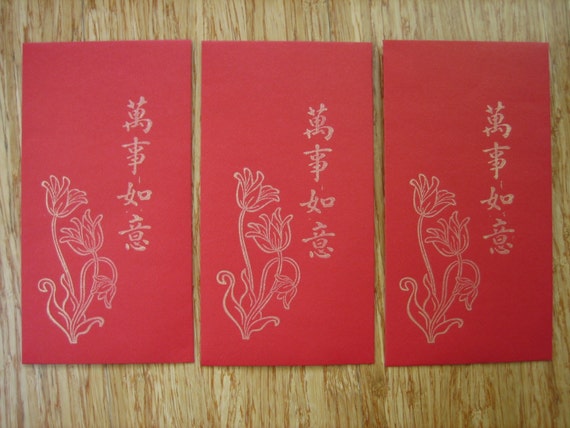 萬事如意
萬事如意
萬事如意